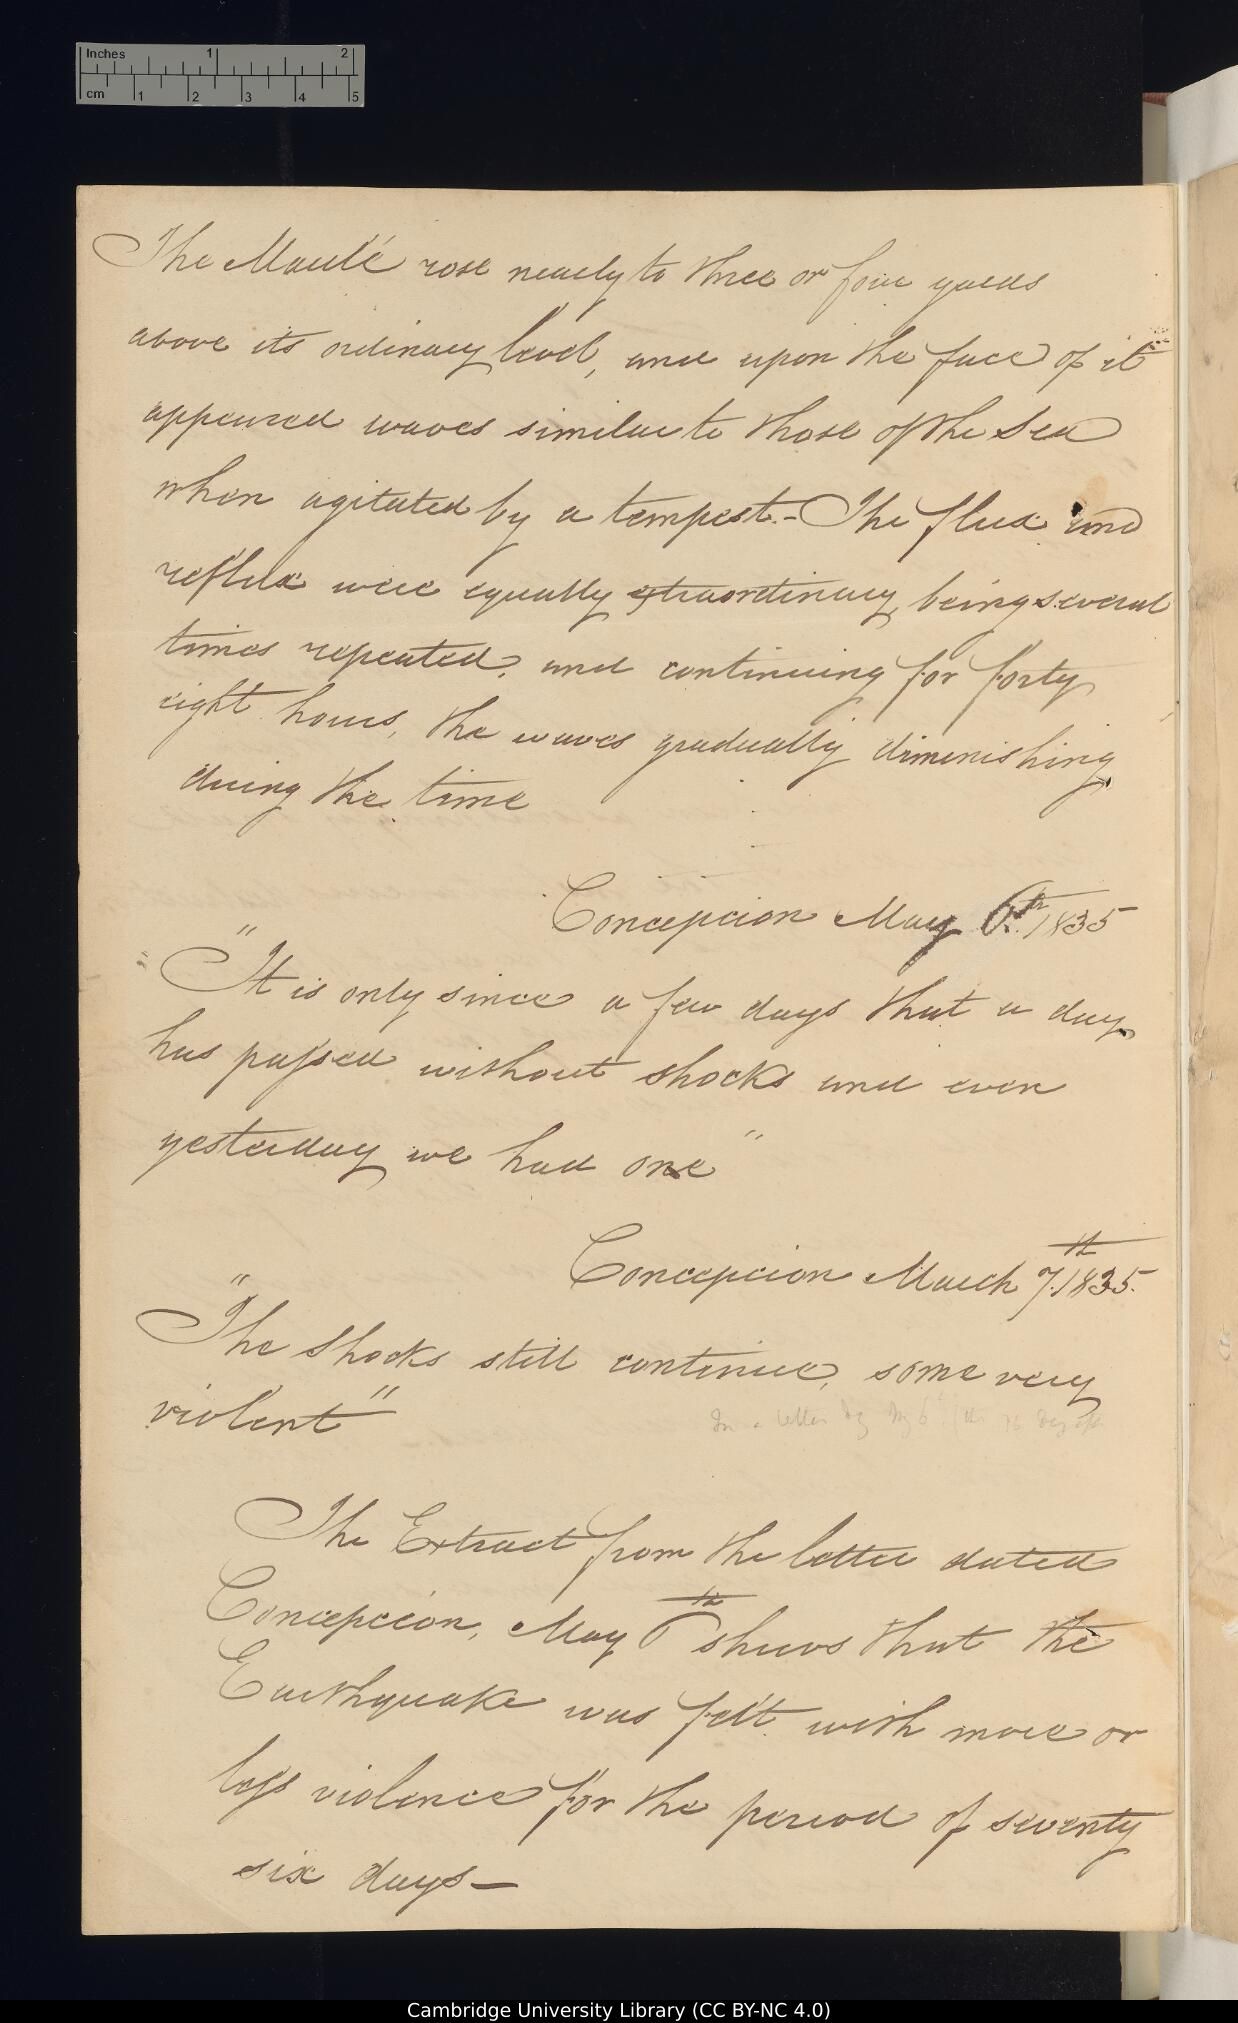 Inches 1 2
cm 1 2 3 4 5
The Maulé rose nearly to three or four yards
above its ordinary level, and upon the face of it
appeared waves similar to those of the Sea
when agitated by a tempest.- The flux and
reflux were equally extraordinary, being several
times repeated, and continuing for forty
eight hours, the waves gradually diminishing
during the time
Concepcion May 6th. 1835
"It is only since a few days that a day
has passed without shocks and even
yesterday we had one"
Concepcion March 7th. 1835.
"The shocks still continue, some very
violent"
In a letter May 6th (the 76 day
The Extract from the letter dated
Concepcion, May 6th shews that the
Earthquake was felt with more or
less violence for the period of seventy
six days—
Cambridge University Library (CC BY-NC 4.0)